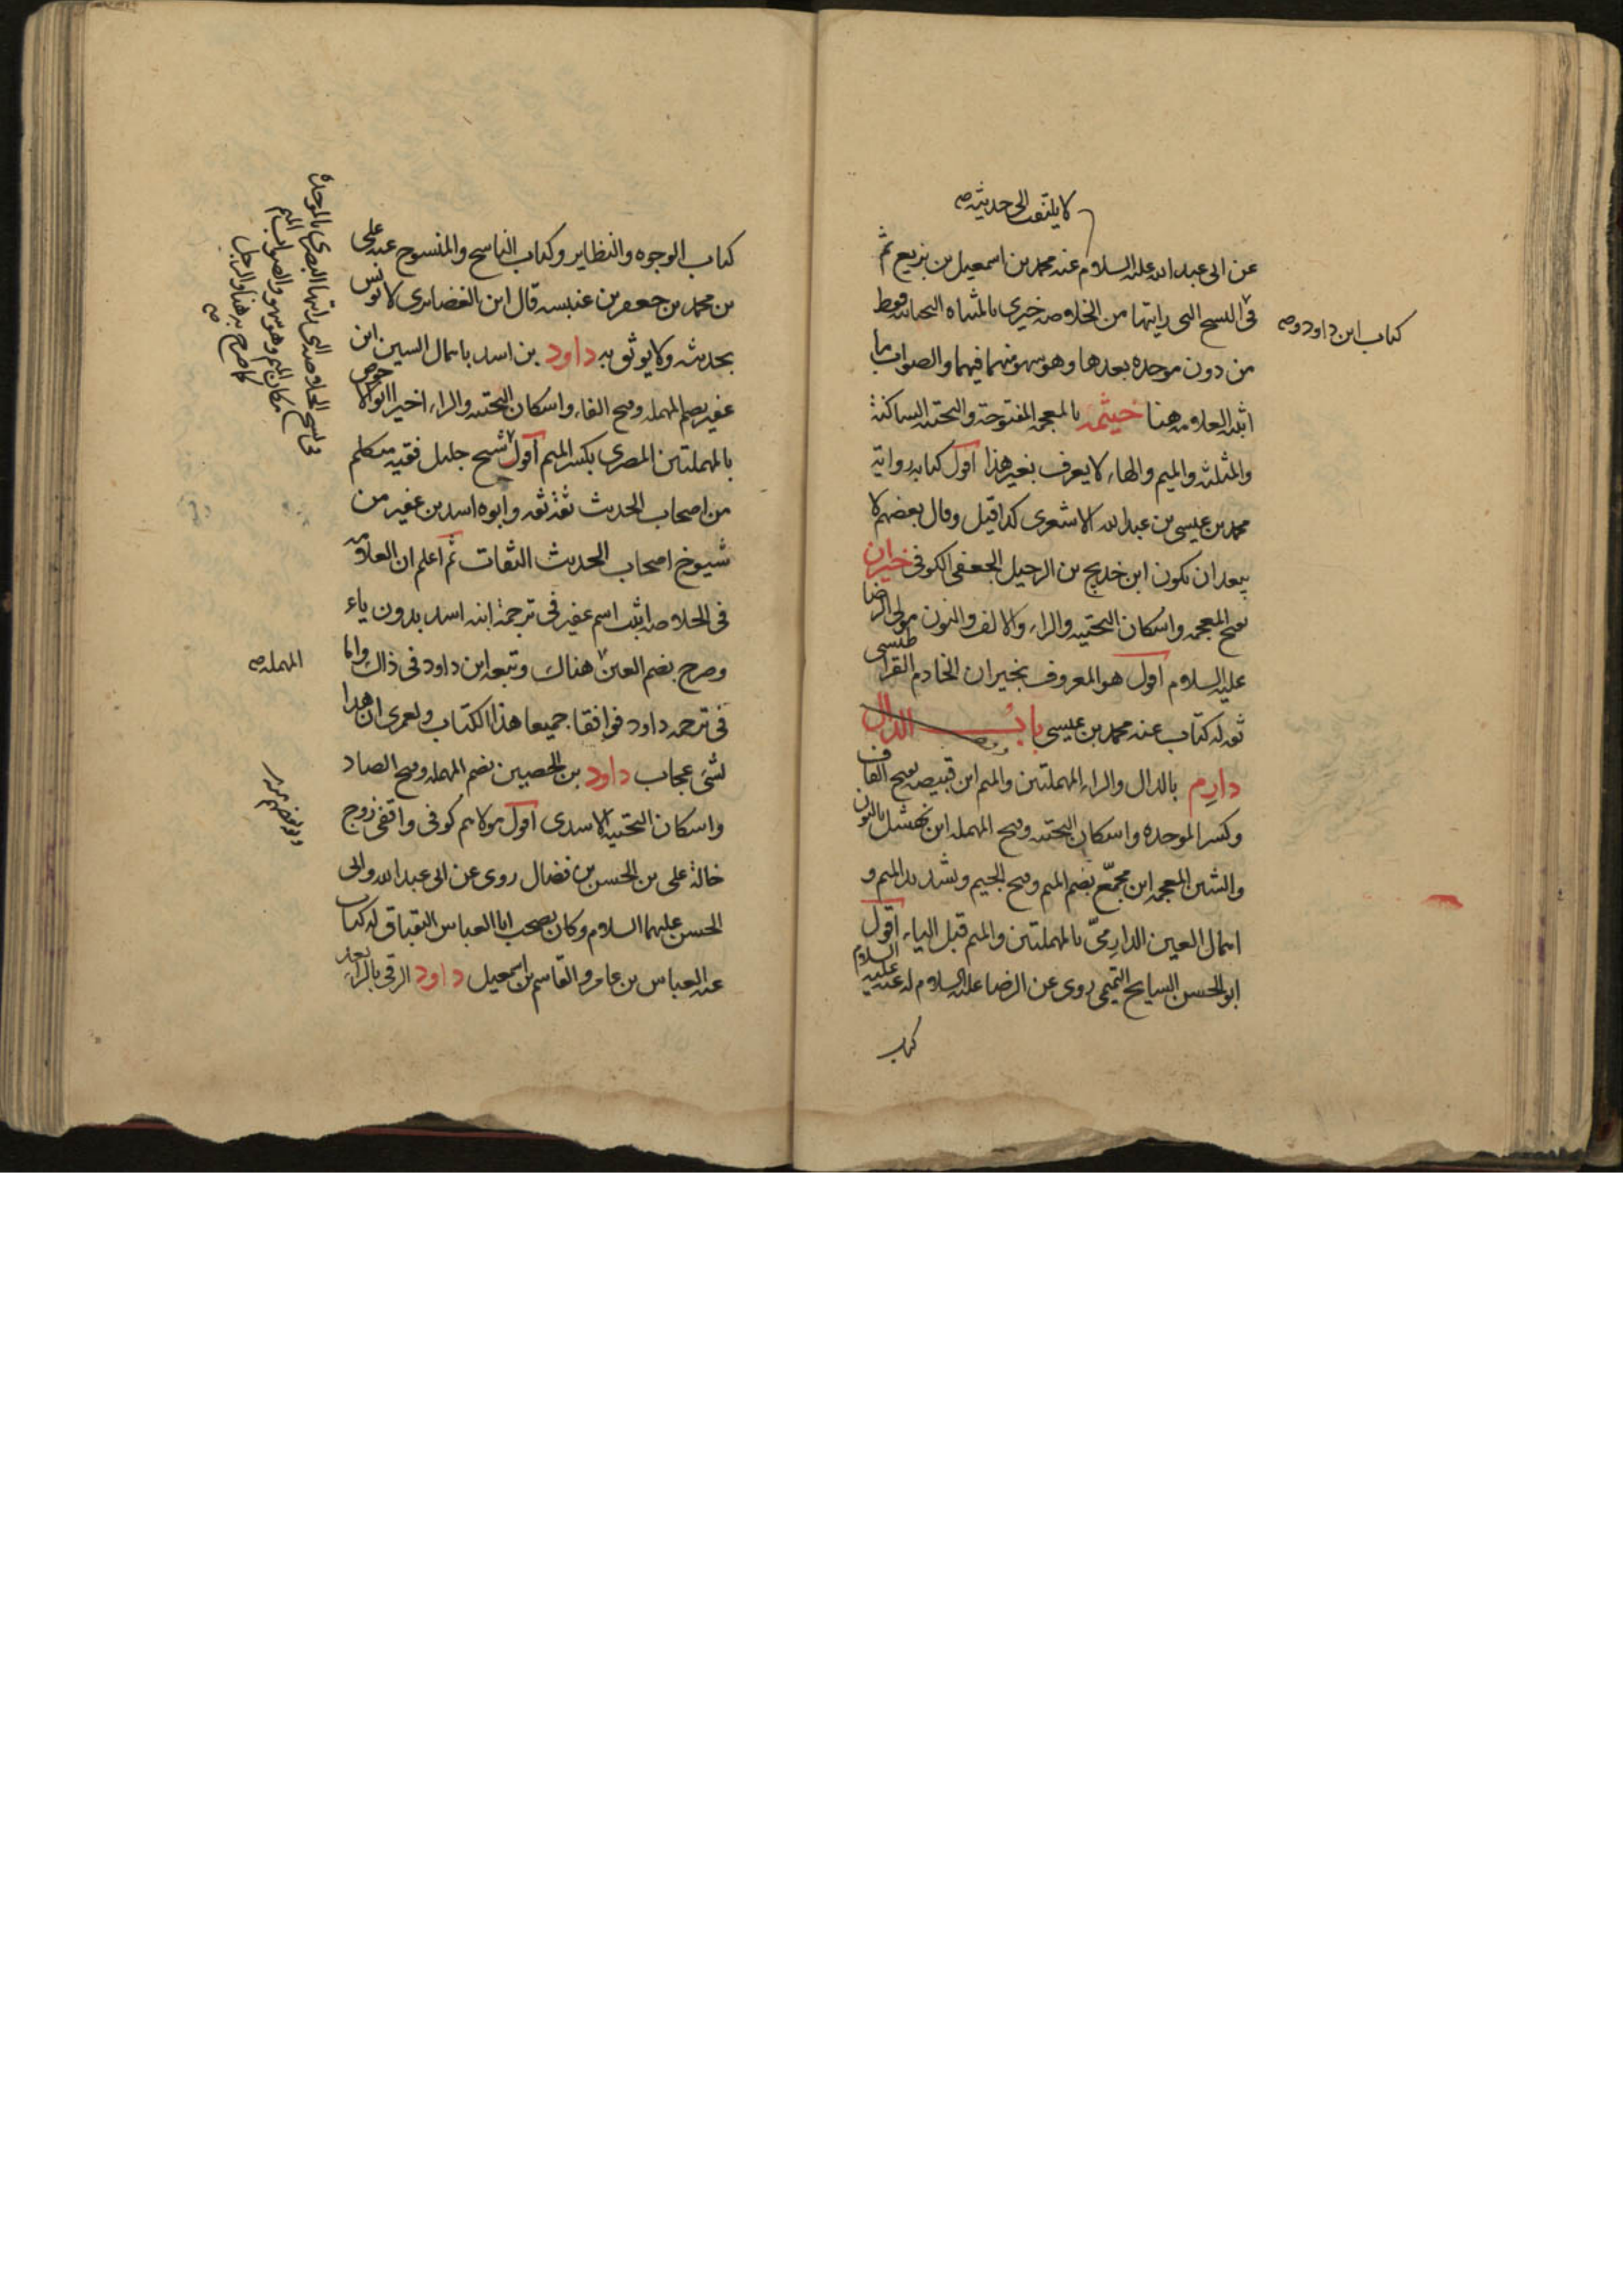 لا يلتفت الى حديثه صح
عن ابى عبد الله عليه السلام عنه محمد بن اسمعيل بن بزيع ثم
فى النسخ التى رايتها من الخلاصه خيرى بالمثناه التحتانيه فقط
كتاب ابن داود و صح
من دون موحده بعدها وهو سهو منهما فيهما والصواب ما
اثبته العلامه هنا خيثمه بالمعجمه المفتوحة والتحتيه الساكنة
والمثلثه والميم والهاء لا يعرف بغير هذا اقول كتابه رواية
محمد بن عيسى بن عبد الله الاشعرى كذا قيل وقال بعضهم لا
يبعد ان يكون ابن خديج بن الرحيل الجعفى الكوفى خيران
بفتح المعجمه واسكان التحتيه والراء والالف والنون مولى الرضا
عليه السلام اقول هو المعروف بخيران الخادم القراطيسى
ثقه له كتاب عنه محمد بن عيسى باب الدال
دارم بالدال والراء المهملتين والميم ابن قبيصه بفتح القاف
وكسر الموحده واسكان التحتيه وفتح المهمله ابن نهشل بالنون
والشين المعجمه ابن مجمّع بضم الميم وفتح الجيم وتشديد الميم و
اهمال العين الدارمىّ بالمهملتين والميم قبل الياء اقول
ابو الحسن السايح التميمى روى عن الرضا عليه السلام له عنه عليه السلام
كتاب
كتاب الوجوه والنظاير وكتاب الناسخ والمنسوخ عنه على
بن محمد بن جعفر بن عنبسه قال ابن الغضايرى لا يونس
بحديثه ولا يوثق به داود بن اسد باهمال السين ابن
عفير بضم المهمله وفتح الفاء واسكان التحتيه والراء اخيرا ابو الاحوص
بالمهملتين المصرى بكسر الميم اقول شيخ جليل فقيه متكلم
من اصحاب الحديث ثقة ثقه وابوه اسد بن عفير من
شيوخ اصحاب الحديث الثقات ثم اعلم ان العلامه
فى الخلاصه اثبت اسم عفير فى ترجمة ابنه اسد بدون ياء
وصرح بضم العين هناك وتبعه ابن داود فى ذاك واما
المهمله صح
فى ترجمه داود فوافقا جميعا هذا الكتاب ولعمرى ان هذا
لشئ عجاب داود بن الحصين بضم المهمله وفتح الصاد
واسكان التحتيه الاسدى اقول مولاهم كوفى واقفى زوج
خالة على بن الحسن بن فضال روى عن ابى عبد الله وابى
الحسن عليهما السلام وكان يصحب ابا العباس البقباق له كتاب
عنه العباس بن عامر والقاسم بن اسمعيل داود الرقى بالراء بعد
فى نسخ الخلاصه التى رايتها البصرى بالموحده
مكان الميم وهو سهو والصواب الميم
كما صرح به هنا والرجل
صح